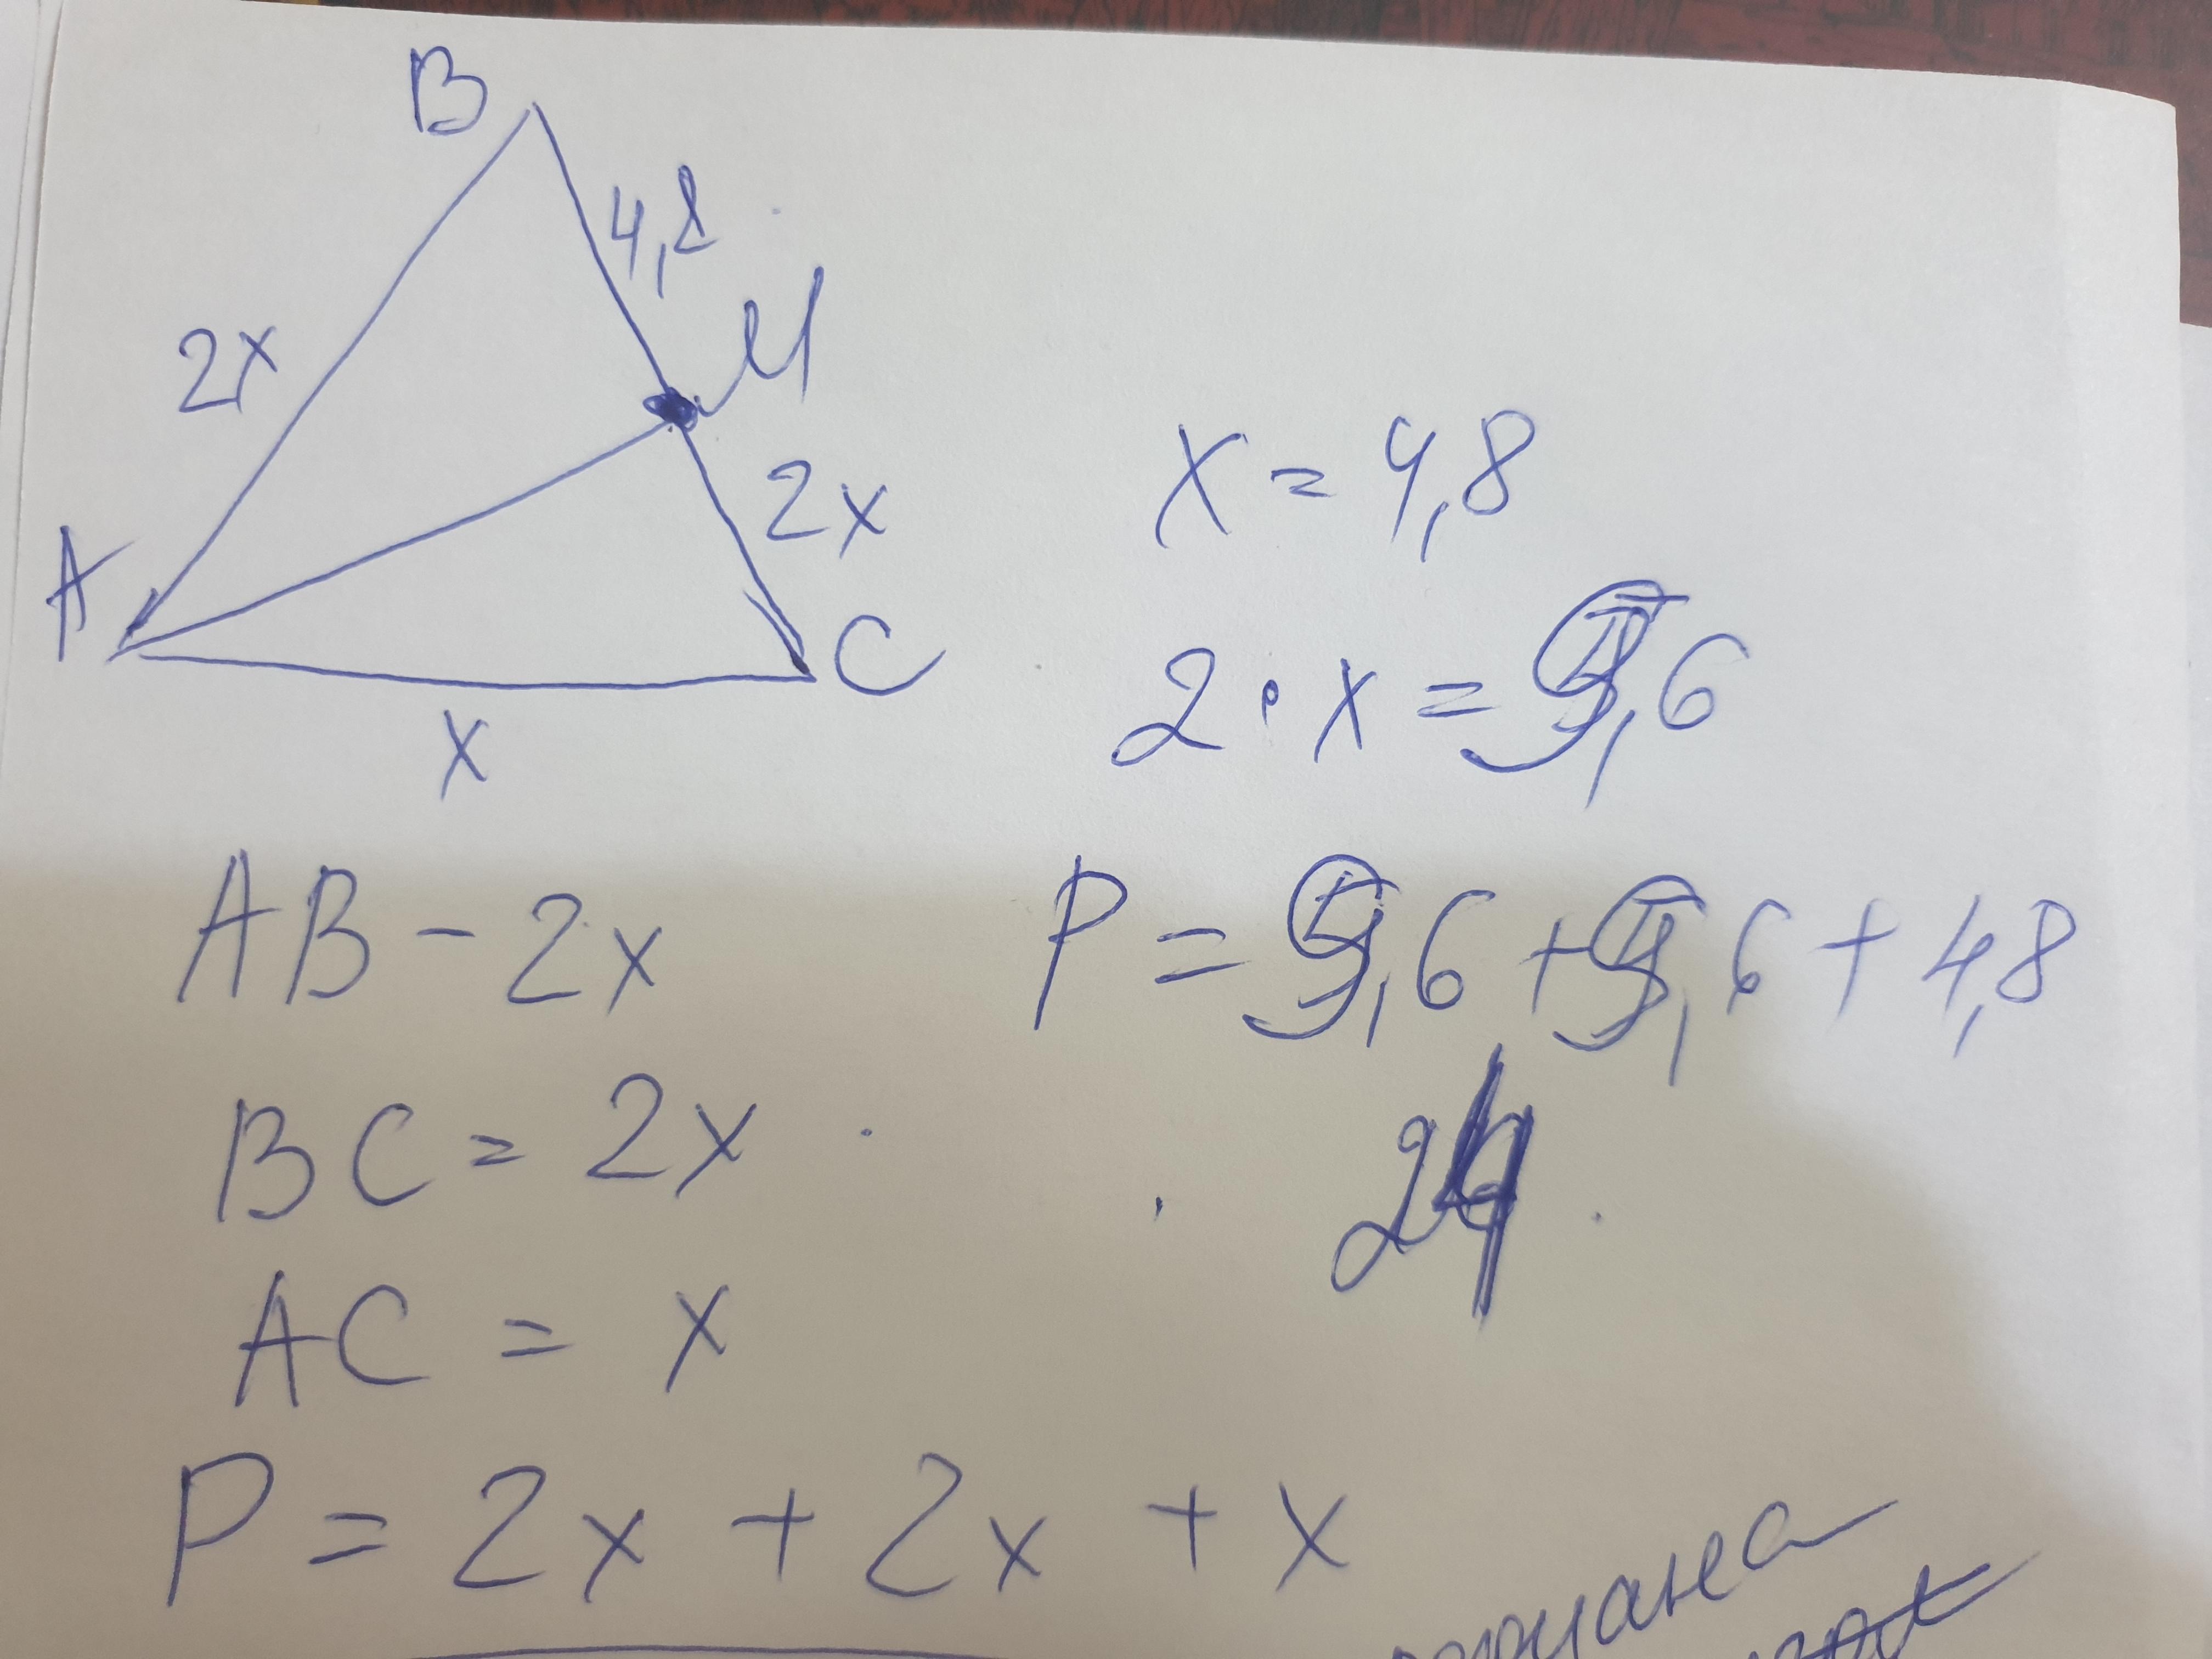 B
4,8
M
2x
2x
A
C
x
x = 4,8
2 · x = 9,6
AB - 2x
P = 9,6 + 9,6 + 4,8
BC = 2x
24
AC = x
P = 2x + 2x + x